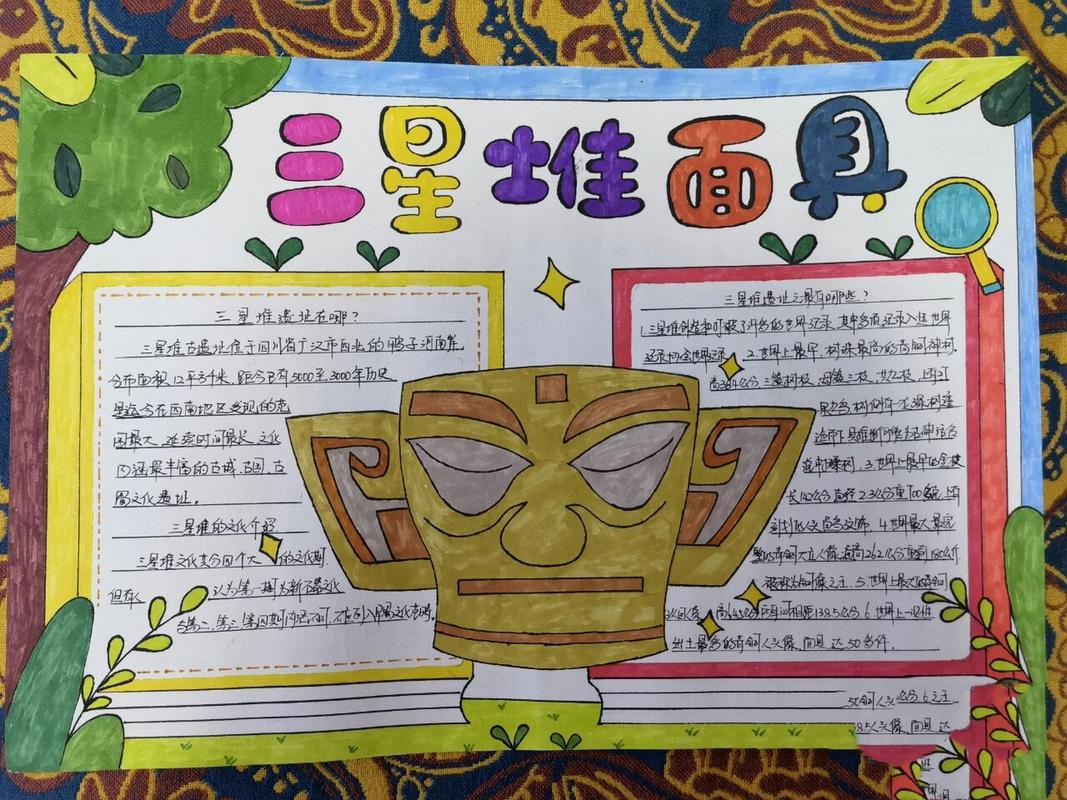 三星堆面具
三星堆遗址在哪?
三星堆古遗址位于四川省广汉市西北的鸭子河南岸
分布面积12平方千米,距今已有5000至3000年历史
是迄今在西南地区发现的范
围最大、延续时间最长、文化
内涵最丰富的古城、古国、古
蜀文化遗址。
三星堆的文化介绍
三星堆文化共分四个大 的文化期
但有人 认为第一期为新石器文化
与第二、第三、第四期内涵不同,不应列入
三星堆遗址之最有哪些?
1.三星堆创造和打破了许多的世界记录,其中多项记录入选世界
记录协会世界记录 2.世界上最早,树珠最高的青铜神树.
高384公分三簇树枝,每簇三枝,共九枝,上有
果 树
3.世界上最早的金杖
长142公分直径2.3公分重700多 上有
刻划 4.世界最大最完
整的青铜大立人像通高262公分重 180公斤
被称为铜像之王.5.世界上最大的青铜
高645公分两耳间相距138.5公分.6.世界上一次性
出土最多的青铜人头像、面具,达50多件.
人头像,面具,达